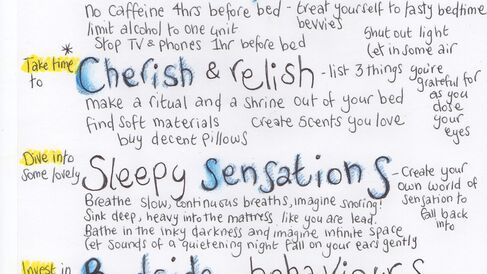 No Caffeine 4hrs before bed - treat yourself to tasty bedtime
bevvies
limit alcohol to one unit
Stop TV & phones 1hr before bed
Shut out light
Let in some air
*
Take time to
Cherish & relish - list 3 things you're
grateful for
as you
close
your
eyes
make a ritual and a shrine out of your bed
find soft materials create scents you love
buy decent pillows
Dive into
some lovely
Sleepy Sensations - Create your
own world of
sensation to
fall back
into
Breathe slow, continuous breaths, imagine snoring!
Sink deep, heavy into the mattress like you are lead.
Bathe in the inky darkness and imagine infinite space
Let sounds of a quietening night fall on your ears gently
Invest in
Bedside behaviours